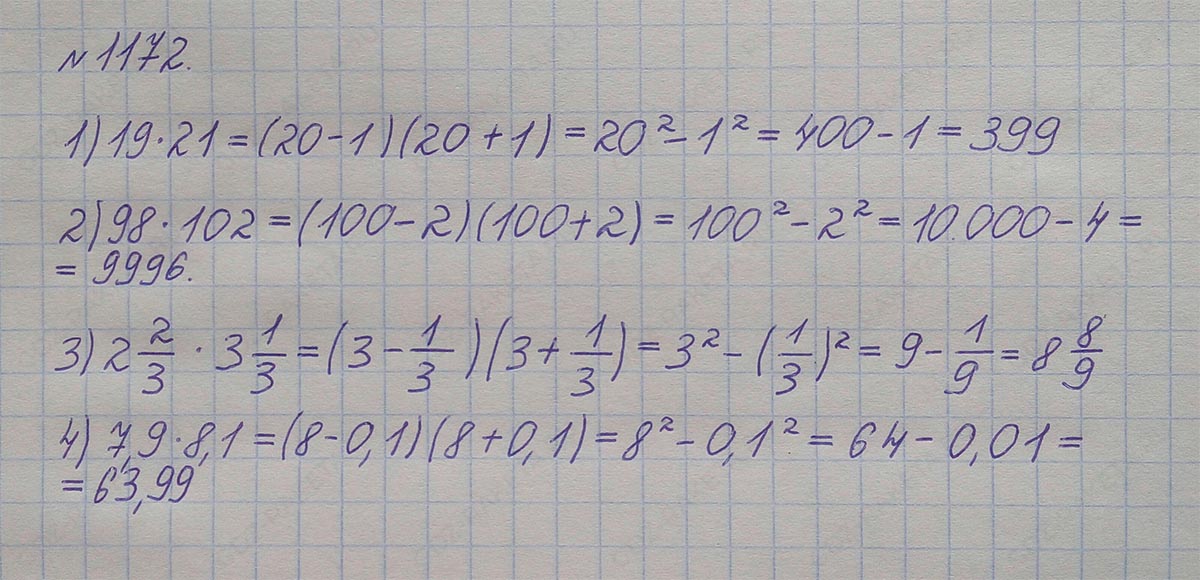 №1172.
1) 19·21=(20-1)(20+1)=20²-1²=400-1=399
2) 98·102=(100-2)(100+2)=100²-2²=10.000-4=
=9996.
3) 2 2/3 · 3 1/3=(3-1/3)(3+1/3)=3²-(1/3)²=9-1/9=8 8/9
4) 7,9·8,1=(8-0,1)(8+0,1)=8²-0,1²=64-0,01=
=63,99